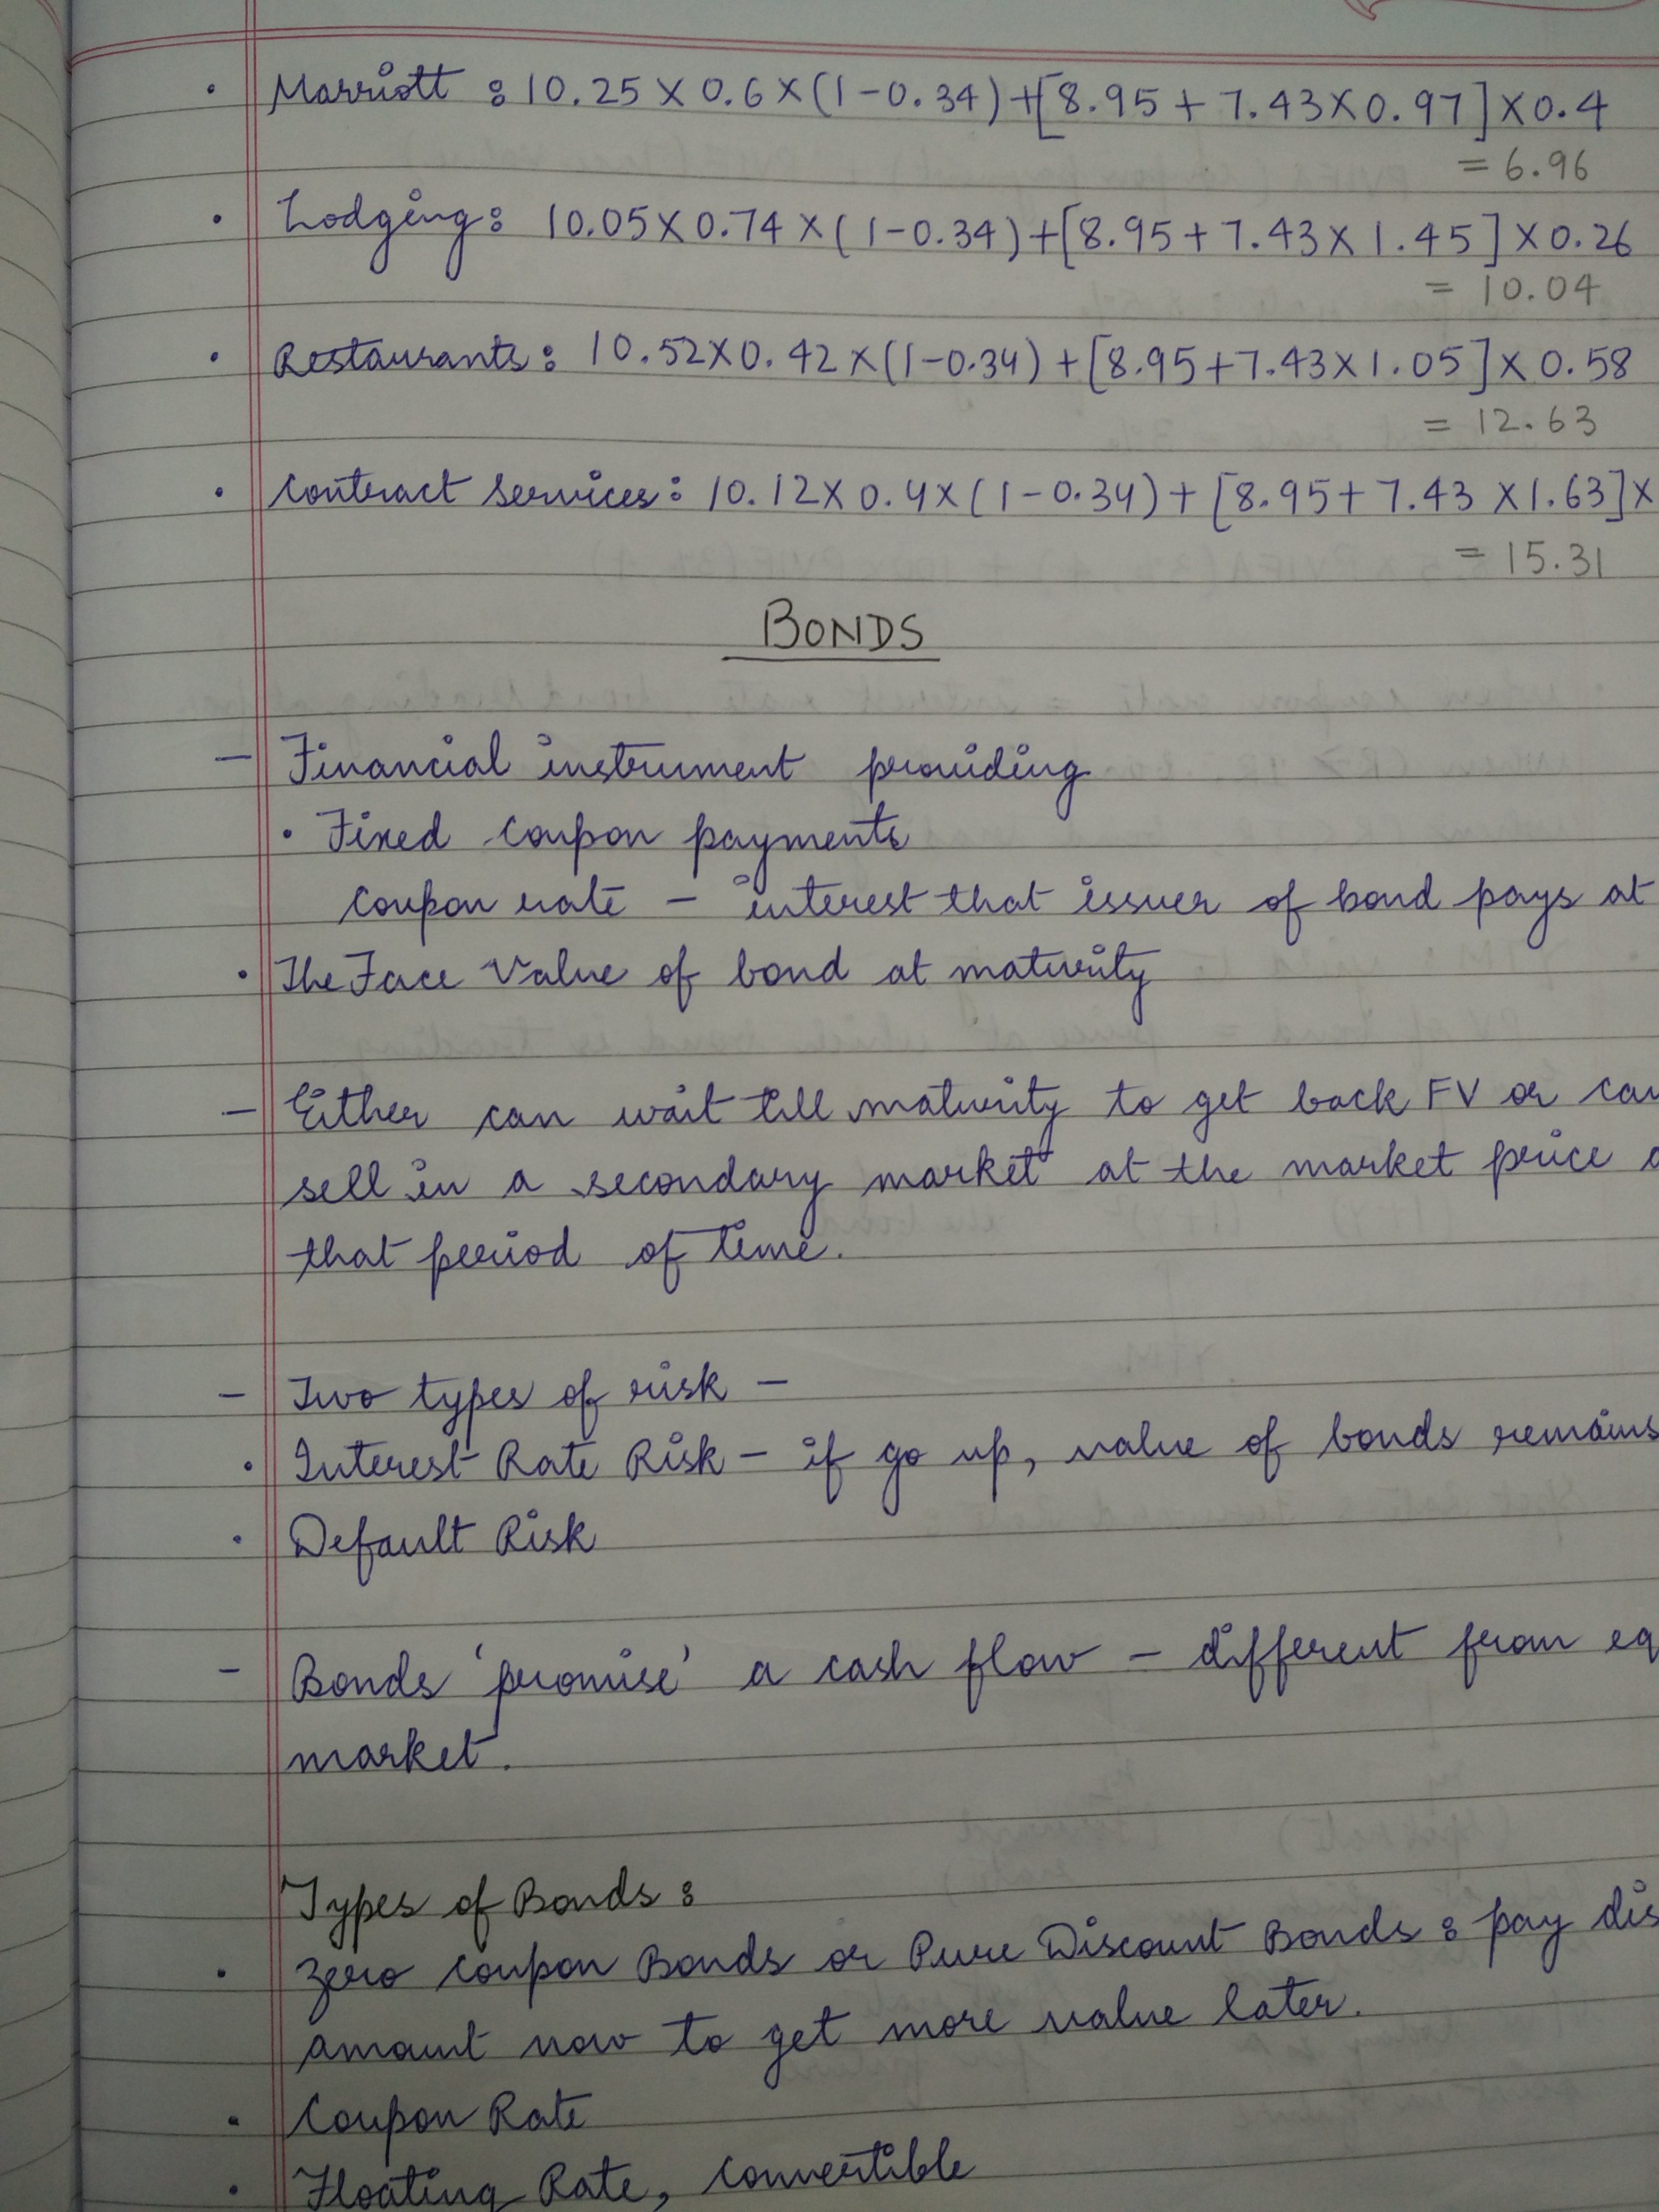 • Marriott : 10.25 × 0.6 × (1 - 0.34) + [8.95 + 7.43 × 0.97] × 0.4
= 6.96
• Lodging : 10.05 × 0.74 × (1 - 0.34) + [8.95 + 7.43 × 1.45] × 0.26
= 10.04
• Restaurants : 10.52 × 0.42 × (1 - 0.34) + [8.95 + 7.43 × 1.05] × 0.58
= 12.63
• Contract Services : 10.12 × 0.4 × (1 - 0.34) + [8.95 + 7.43 × 1.63] ×
= 15.31
BONDS
- Financial instrument providing
• Fixed coupon payments
coupon rate - interest that issuer of bond pays at
• The Face Value of bond at maturity
- Either can wait till maturity to get back FV or can
sell in a secondary market at the market price
that period of time.
- Two types of risk -
• Interest Rate Risk - if go up, value of bonds remains
• Default Risk
- Bonds 'promise' a cash flow - different from eq
market.
Types of Bonds :
• Zero Coupon Bonds or Pure Discount Bonds : pay dis
amount now to get more value later.
• Coupon Rate
• Floating Rate, Convertible